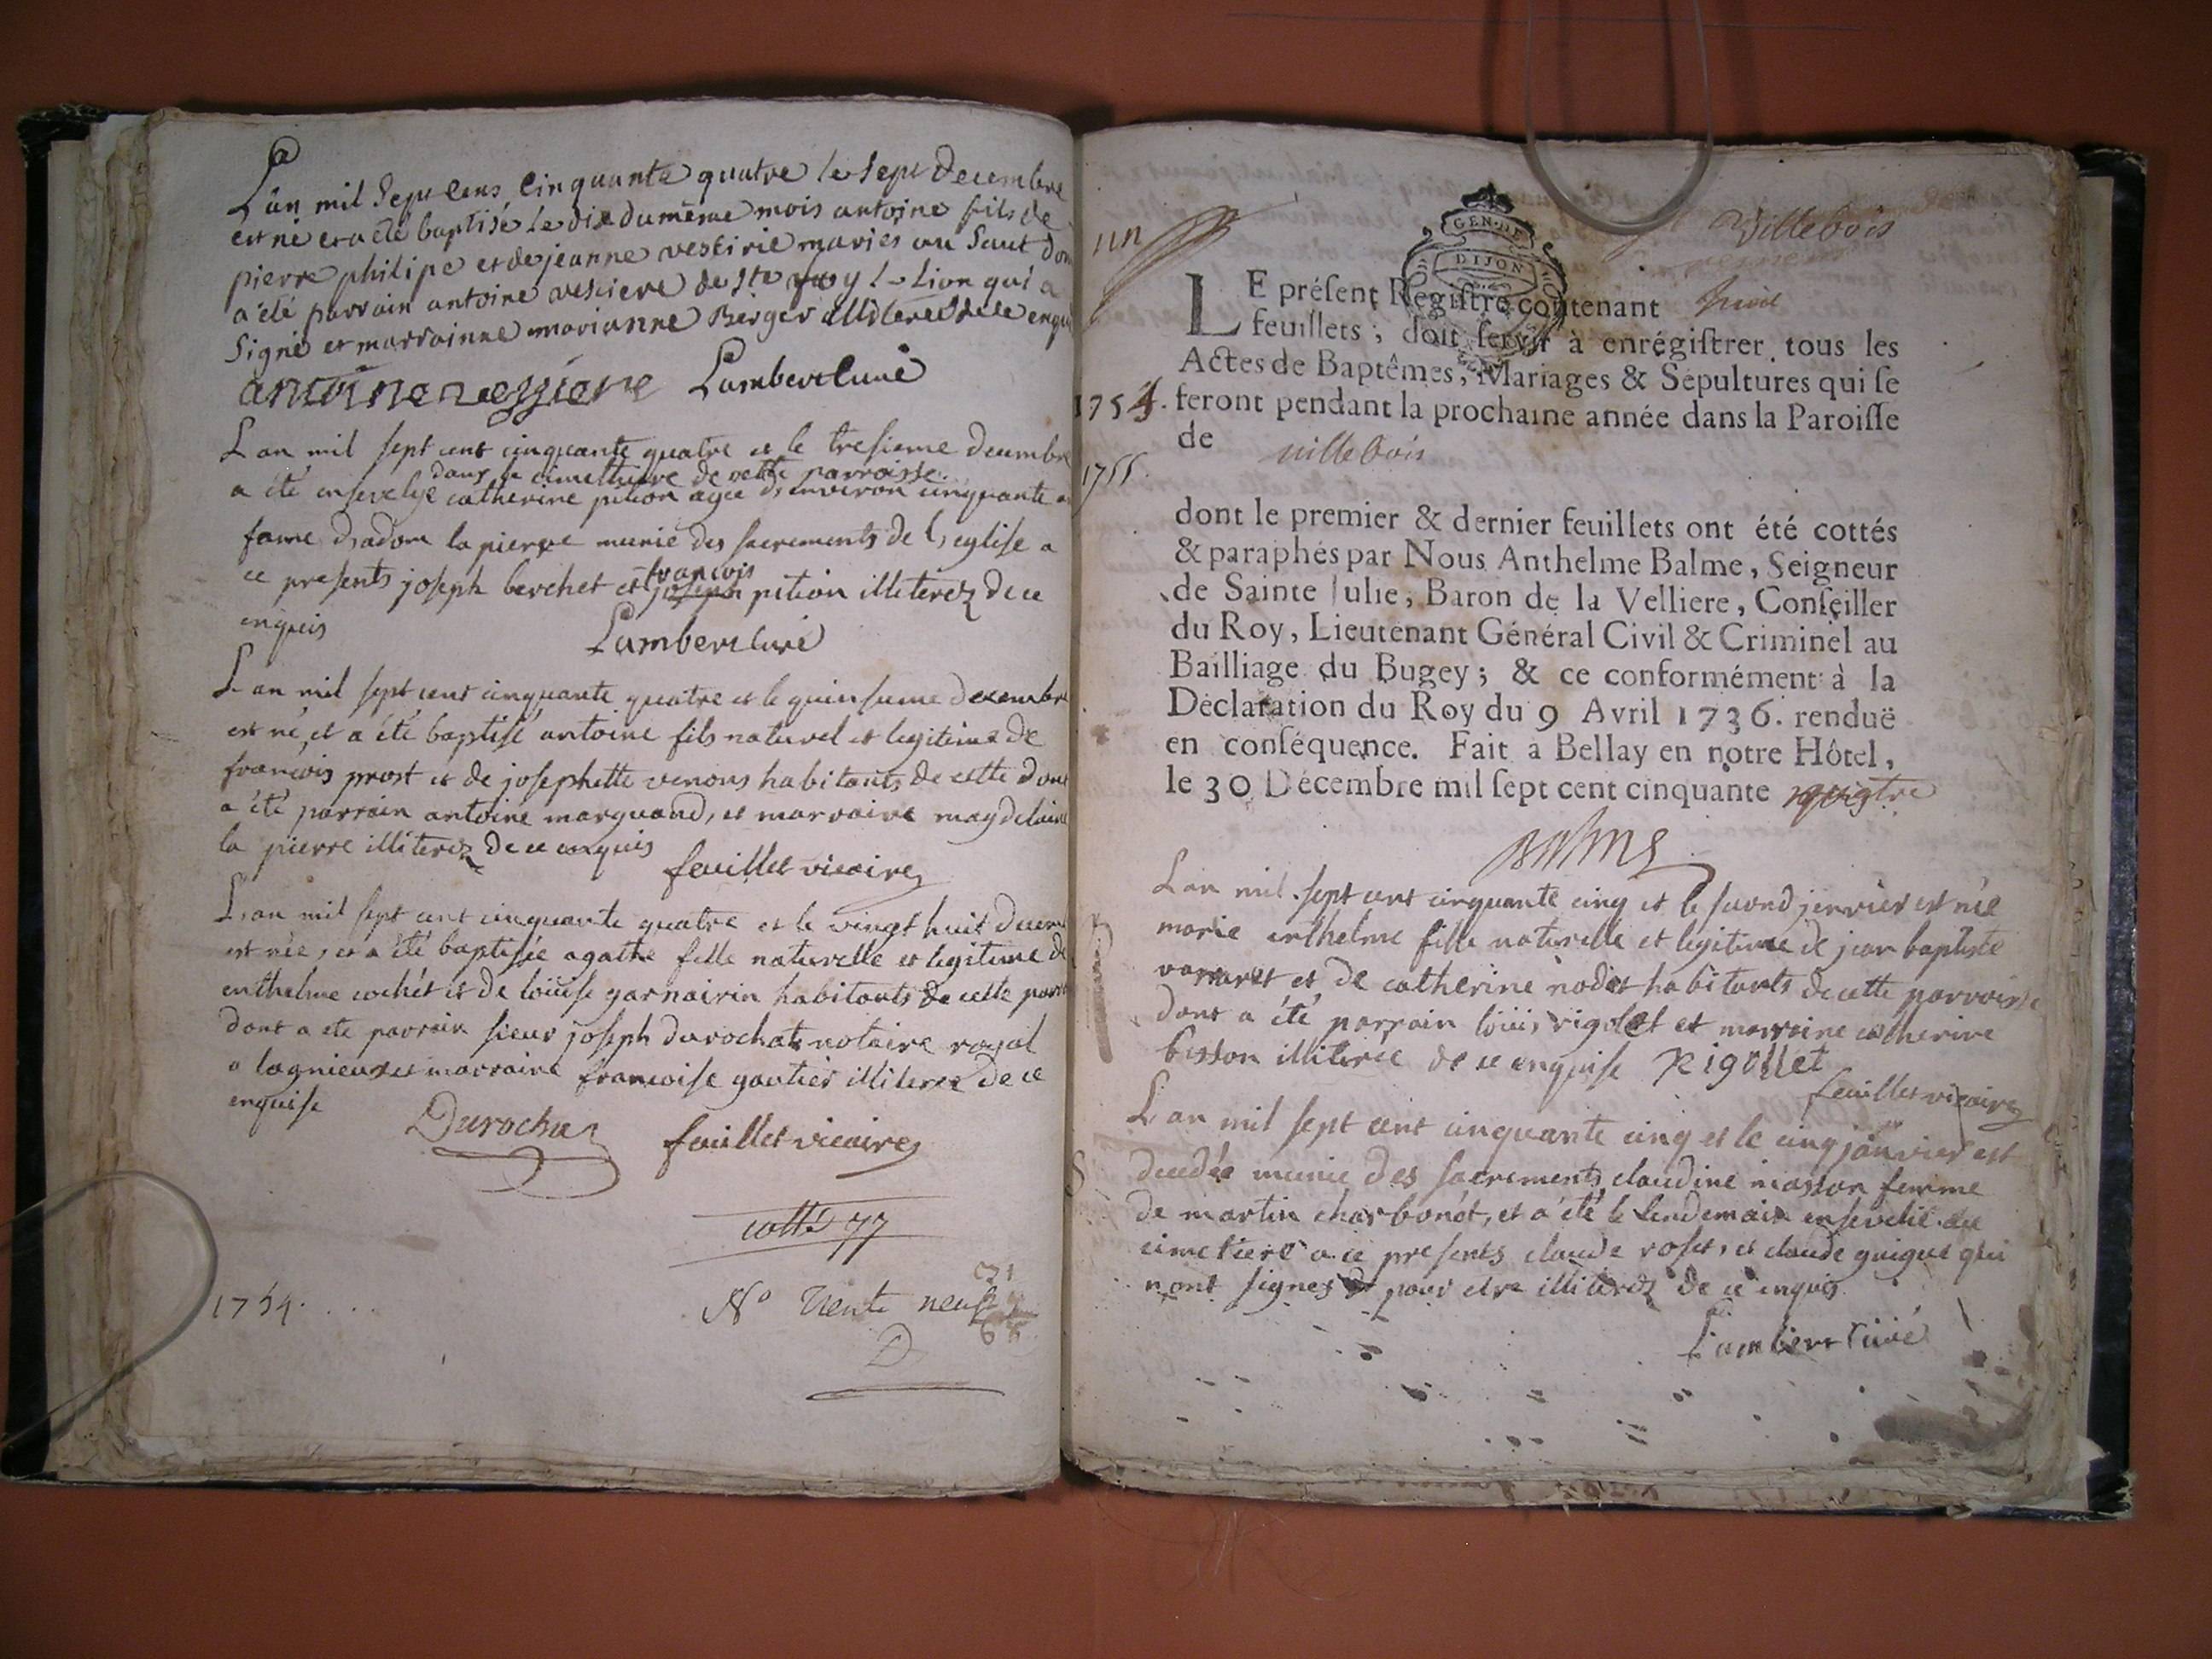 L'an mil Sept Cens Cinquante quatre le Sept Decembre
est né et a été baptisé le dix du même mois antoine fils de
pierre philipe et de jeanne vesirie mariés au Saut don
a été parrain antoine vesciere de Ste foy l Lion qui a
Signé et marrainne marianne Berger illiteree de ce enqui
antoine vessiere Lambert Curé
L an mil sept cent cinquante quatre et le tresieme decembre
dans le cimethiere de cette parroisse
a été ensevelye catherine pition agée d'environ cinquante a
fame d'adom la pierre munie des sacrements de l'eglise a
ce presents joseph berchet et
francois
joseph pition illiterez de ce
inquis Lambert Curé
L an mil sept cent cinquante quatre et le quinsieme decembre
est né, et a été baptisé antoine fils naturel et legitime de
francois prost et de josephette venons habitants de cette dont
a été parrain antoine marquand, et marraine magdelaine
la pierre illiterez de ce enquis feuillet vicaire
L'an mil sept cent cinquante quatre et le vingt huit decem
est née, et a été baptisée agathe fille naturelle et legitime de
enthelme cochét et de loüise garnairin habitants de cette parr
dont a ete parrain sieur joseph durochat notaire royal
a lagnieux et marraine francoise gautier illiteree de ce
enquise Durochat feuillet vicaire
cotté 77
1754. . . . N° Trente neuf
D
un Villebois
GEN. DE
DIJON
LE présent Registre contenant huit
feuillets, doit servir à enrégistrer tous les
Actes de Baptêmes, Mariages & Sépultures qui se
1754. feront pendant la prochaine année dans la Paroisse
de villebois
1755.
dont le premier & dernier feuillets ont été cottés
& paraphés par Nous Anthelme Balme, Seigneur
de Sainte Julie, Baron de la Velliere, Conseiller
du Roy, Lieutenant Général Civil & Criminel au
Bailliage du Bugey; & ce conformément à la
Déclaration du Roy du 9 Avril 1736. renduë
en conséquence. Fait à Bellay en notre Hôtel,
le 30 Décembre mil sept cent cinquante quatre
Balme
L an mil sept cent cinquante cinq et le second jenvier est née
marie enthelme fille naturelle et legitime de jean baptiste
varraret et de catherine nodet habitants de cette parroisse
dont a été parrain loüis rigolet et marraine catherine
besson illiterée de ce enquise Rigollet
feuillet vicaire
L an mil sept cent cinquante cinq et le cinq janvier est
S decedée munie des sacrements claudine masson femme
de martin charbonét, et a été le lendemain ensevelie au
cimetiere a ce presents claude roset, et claude guigue qui
n ont signes pour etre illiterez de ce enquis
Lambert Curé